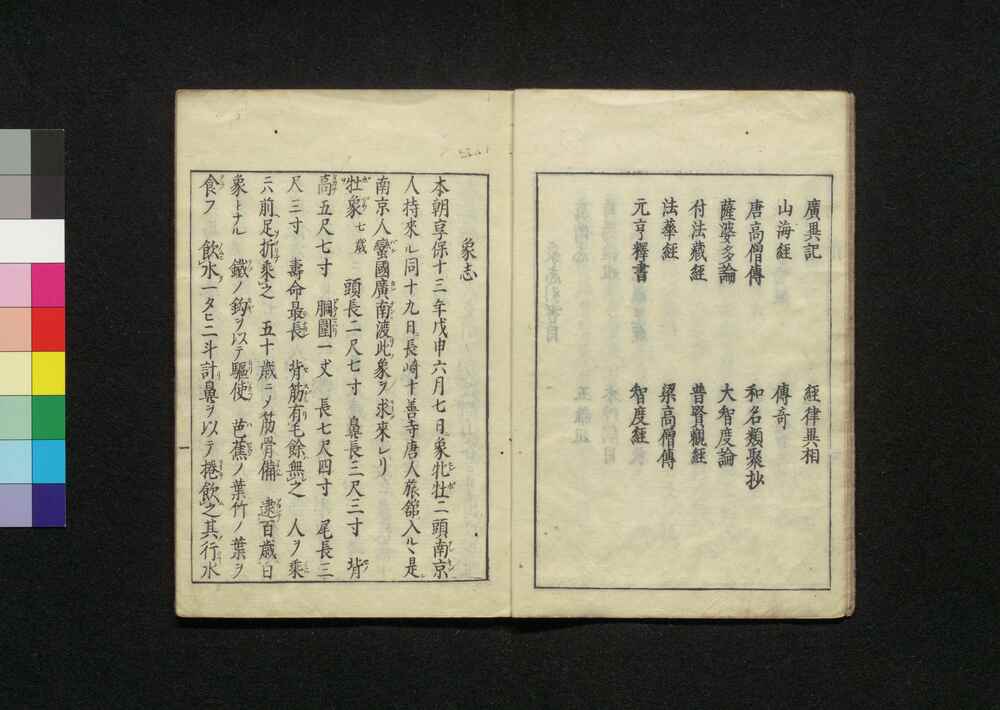 廣異記　經律異相
山海經　傳奇
唐高僧傳　和名類聚抄
薩婆多論　大智度論
付法藏經　普賢觀經
法華經　梁高僧傳
元亨釋書　智度經
象志
本朝享保十三年戊申六月七日象牝牡二頭南京
人持來ル同十九日長崎十善寺唐人旅舘入ル是
南京人蠻國廣南渡此象ヲ求來レリ
牡象七歳　頭長二尺七寸　鼻長三尺三寸　背
高五尺七寸　胴圍一丈　長七尺四寸　尾長三
尺三寸　壽命最長　背筋有毛餘無之　人ヲ乘
ニ前足折乘之　五十歳ニメ筋骨備　逮百歳白
象トナル　鐵ノ鈎ヲ以テ驅使　芭蕉ノ葉竹ノ葉ヲ
食フ　飲水一タヒ二斗計鼻ヲ以テ捲飲之其行水
一